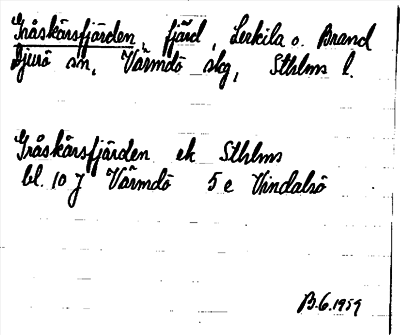 Gråskärsfjärden, fjärd, Lerkila o. Brand
Djurö sn, Värmdö skg, Sthlms l.
Gråskärsfjärden ek Sthlms
bl. 10 J Värmdö 5 e Vindalsö
B.G. 1959